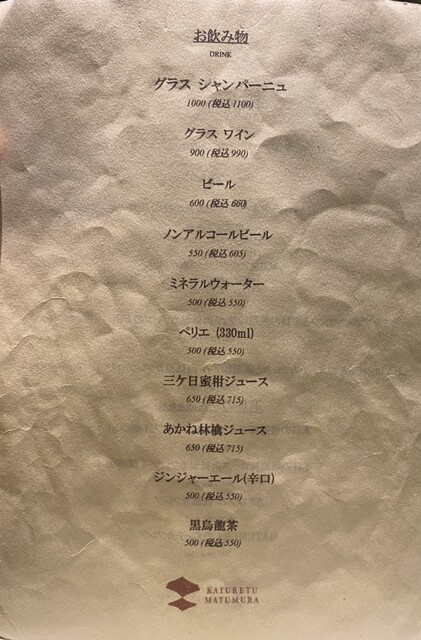 お飲み物
DRINK
グラス シャンパーニュ
1000 (税込1100)
グラス ワイン
900 (税込990)
ビール
600 (税込660)
ノンアルコールビール
550 (税込605)
ミネラルウォーター
500 (税込550)
ペリエ (330ml)
500 (税込550)
三ケ日蜜柑ジュース
650 (税込715)
あかね林檎ジュース
650 (税込715)
ジンジャーエール(辛口)
500 (税込550)
黒烏龍茶
500 (税込550)
KATURETU
MATUMURA